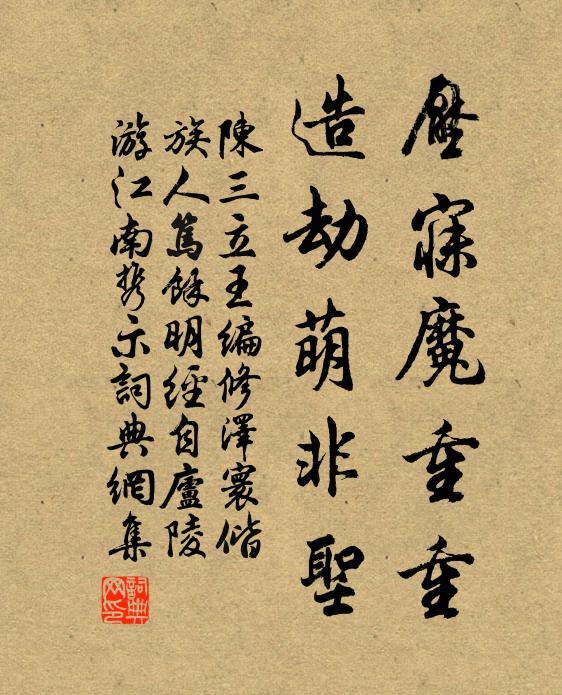 壓寐魔重重
造劫萌非聖
陳三立王編修澤寰偕
族人篤餘明經自廬陵
游江南携示詞典網集
詞典网印